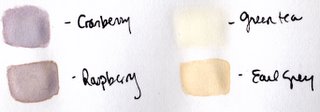 - Cranberry
- Green tea
- Raspberry
- Earl Grey